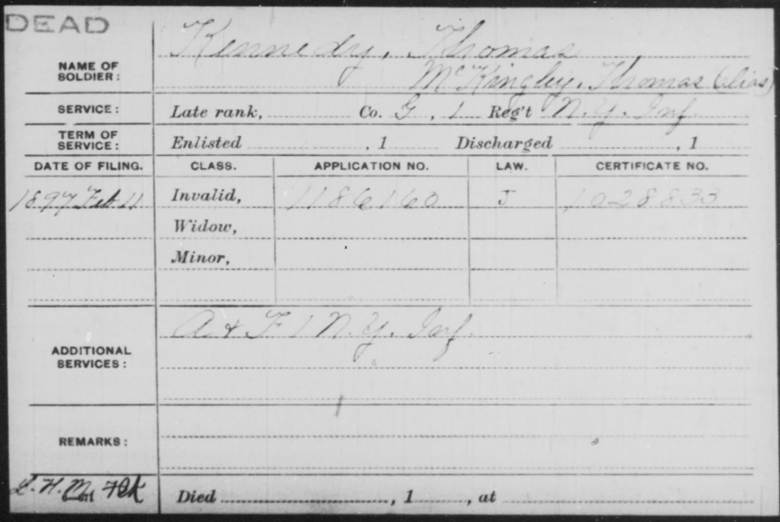 DEAD
NAME OF SOLDIER: Kennedy, Thomas
McKingley, Thomas (alias)
SERVICE: Late rank, Co. G, 1 Reg't N.Y. Inf
TERM OF SERVICE: Enlisted , 1 Discharged , 1
DATE OF FILING. CLASS. APPLICATION NO. LAW. CERTIFICATE NO.
1897 Feb. 11 Invalid, 1186160 J 1028833
Widow,
Minor,
ADDITIONAL SERVICES: A & F 1 N.Y. Inf.
REMARKS:
Died , 1 , at